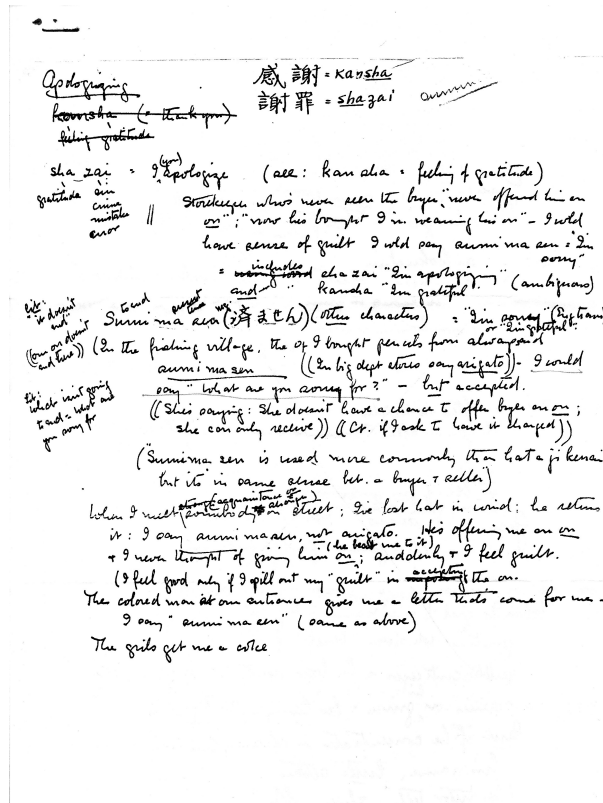 Apologizing
感謝 = kansha
kansha (= thank you)
謝罪 = shazai
feeling gratitude
sha zai = I (you) apologize (see: kansha = feeling of gratitude)
gratitude sin
crime
mistake
error
Storekeeper who's never seen the buyer, "never offered him an
on"; "now he's bought I'm wearing his on" - I wld
have sense of guilt I wld say sumimasen = "I'm
sorry"
= includes shazai "I'm apologizing"
and kansha "I'm grateful". (ambiguous)
lit:
"it doesn't
end"
((our on doesn't
end here))
to end present tense neg.
Sumimasen (済ません) (other characters) = "I'm sorry"
or "I'm grateful"
(In the fishing village, the I bought pencils from always said
sumimasen ((In big dept stores say arigato)) - I would
say "What are you sorry for?" - but accepted.
lit:
what isn't going
to end = what are
you sorry for
((She's saying: She doesn't have a chance to offer buyer an on;
she can only receive)) ((Cf. if I ask to have it changed))
("Sumimasen is used more commonly than katajikenai
but its in same sense bet. a buyer & seller)
When I meet somebody (acquaintance or stranger) on street; I've lost hat in wind; he returns
it: I say sumimasen, not arigato. He's offering me an on
& I never thought of giving him on (he beat me to it); suddenly & I feel guilt.
(I feel good only if I spill out my "guilt" in accepting the on.
The colored man at our entrances gives me a letter that's come for me -
I say "sumimasen" (same as above)
The girls get me a coke